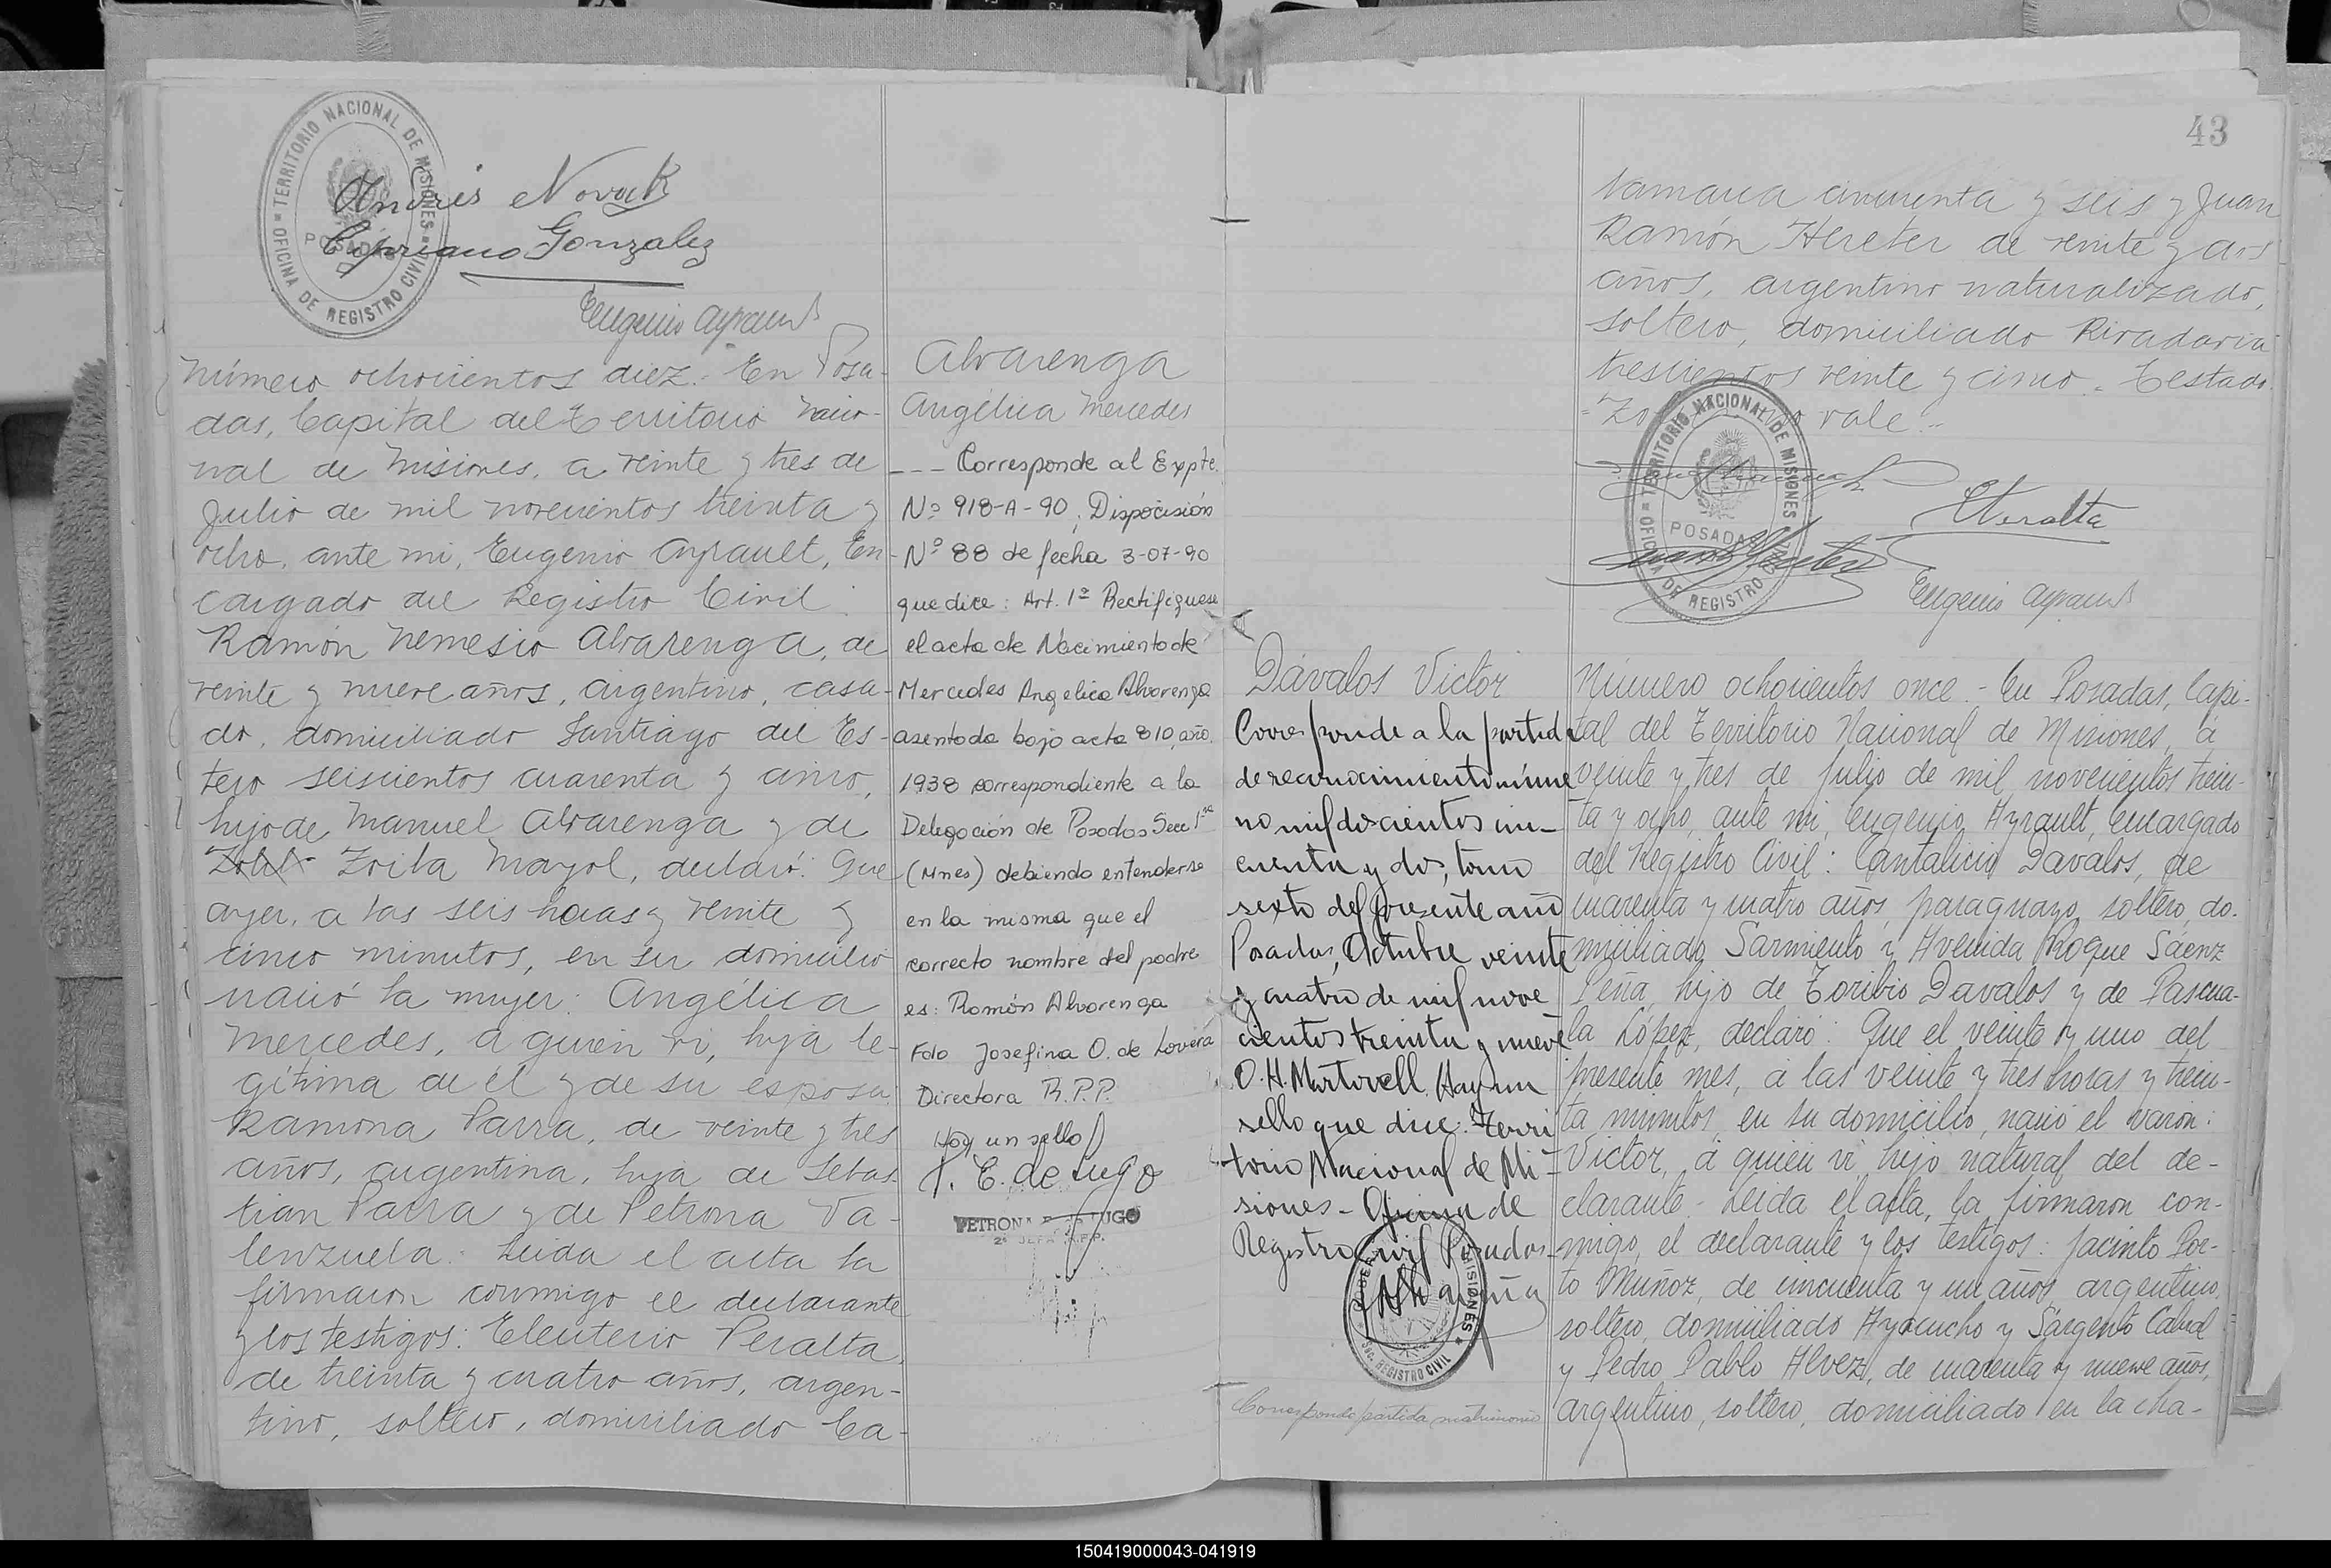 TERRITORIO NACIONAL DE MISIONES
OFICINA DE REGISTRO CIVIL
POSADAS
Andrés Novak
Cipriano Gonzalez
Eugenio Ayrault
Número ochocientos diez.- En Posa-
das, Capital del Territorio Nacio-
nal de Misiones, a veinte y tres de
Julio de mil novecientos treinta y
ocho, ante mi, Eugenio Ayrault, En-
cargado del Registro Civil:
Ramón Nemesio Alvarenga, de
veinte y nueve años, argentino, casa-
do, domiciliado Santiago del Es-
tero seiscientos cuarenta y cinco,
hijo de Manuel Alvarenga y de
Zoila Mayol, declaró: Que
ayer, a las seis horas y veinte y
cinco minutos, en su domicilio
nació la mujer: Angélica
Mercedes, a quien vi, hija le-
gítima de él y de su esposa
Ramona Parra, de veinte y tres
años, argentina, hija de Sebas-
tian Parra y de Petrona Va-
lenzuela. Leida el acta la
firmaron conmigo el declarante
y los testigos: Eleuterio Peralta,
de treinta y cuatro años, argen-
tino, soltero, domiciliado Ca-
Alvarenga
Angélica Mercedes
--- Corresponde al Expte.
Nº 918-A-90, Dispocisión
Nº 88 de fecha 3-07-90
que dice: Art. 1º Rectifiquese
el acta de Nacimiento de
Mercedes Angelica Alvarenga
asentada bajo acta 810, año
1938 correspondiente a la
Delegación de Posadas Secc 1ra
(Mnes) debiendo entenderse
en la misma que el
correcto nombre del padre
es: Ramón Alvarenga
Fdo Josefina O. de Lovera
Directora R.P.P.
Hay un sello
P. E. de Lugo
PETRONA E. DE LUGO
43
tamarca cincuenta y seis y Juan
Ramón Hereter de veinte y dos
años, argentino naturalizado,
soltero, domiciliado Rivadavia
trescientos veinte y cinco. Testado
vale.-
TERRITORIO NACIONAL DE MISIONES
OFICINA DE REGISTRO CIVIL
POSADAS
EPeralta
Eugenio Ayrault
Dávalos Victor
Corresponde a la partida
de reconocimiento núme
ro mil doscientos cin-
cuenta y dos, tomo
sexto del presente año
Posadas, Octubre veinte
y cuatro de mil nove
cientos treinta y nueve
O. H. Martorell. Hay un
sello que dice: Terri
torio Nacional de Mi-
siones - Oficina de
Registro Civil Posadas
MISIONES
REGISTRO CIVIL
Corresponde partida matrimonio
Número ochocientos once.- En Posadas, Capi-
tal del Territorio Nacional de Misiones, á
veinte y tres de Julio de mil novecientos trein-
ta y ocho, ante mi, Eugenio Ayrault, Encargado
del Registro Civil: Cantalicio Davalos, de
cuarenta y cuatro años, paraguayo, soltero, do-
miciliado Sarmiento y Avenida Roque Sáenz
Peña, hijo de Toribio Davalos y de Pascua-
la López, declaró: Que el veinte y uno del
presente mes, á las veinte y tres horas y trein-
ta minutos, en su domicilio, nació el varón:
Victor, á quien vi, hijo natural del de-
clarante.- Leida el acta, la firmaron con-
migo, el declarante y los testigos: Jacinto Por-
to Muñoz, de cincuenta y un años, argentino,
soltero, domiciliado Ayacucho y Sargento Cabral
y Pedro Pablo Alvez, de cuarenta y nueve años,
argentino, soltero, domiciliado en la cha-
150419000043-041919